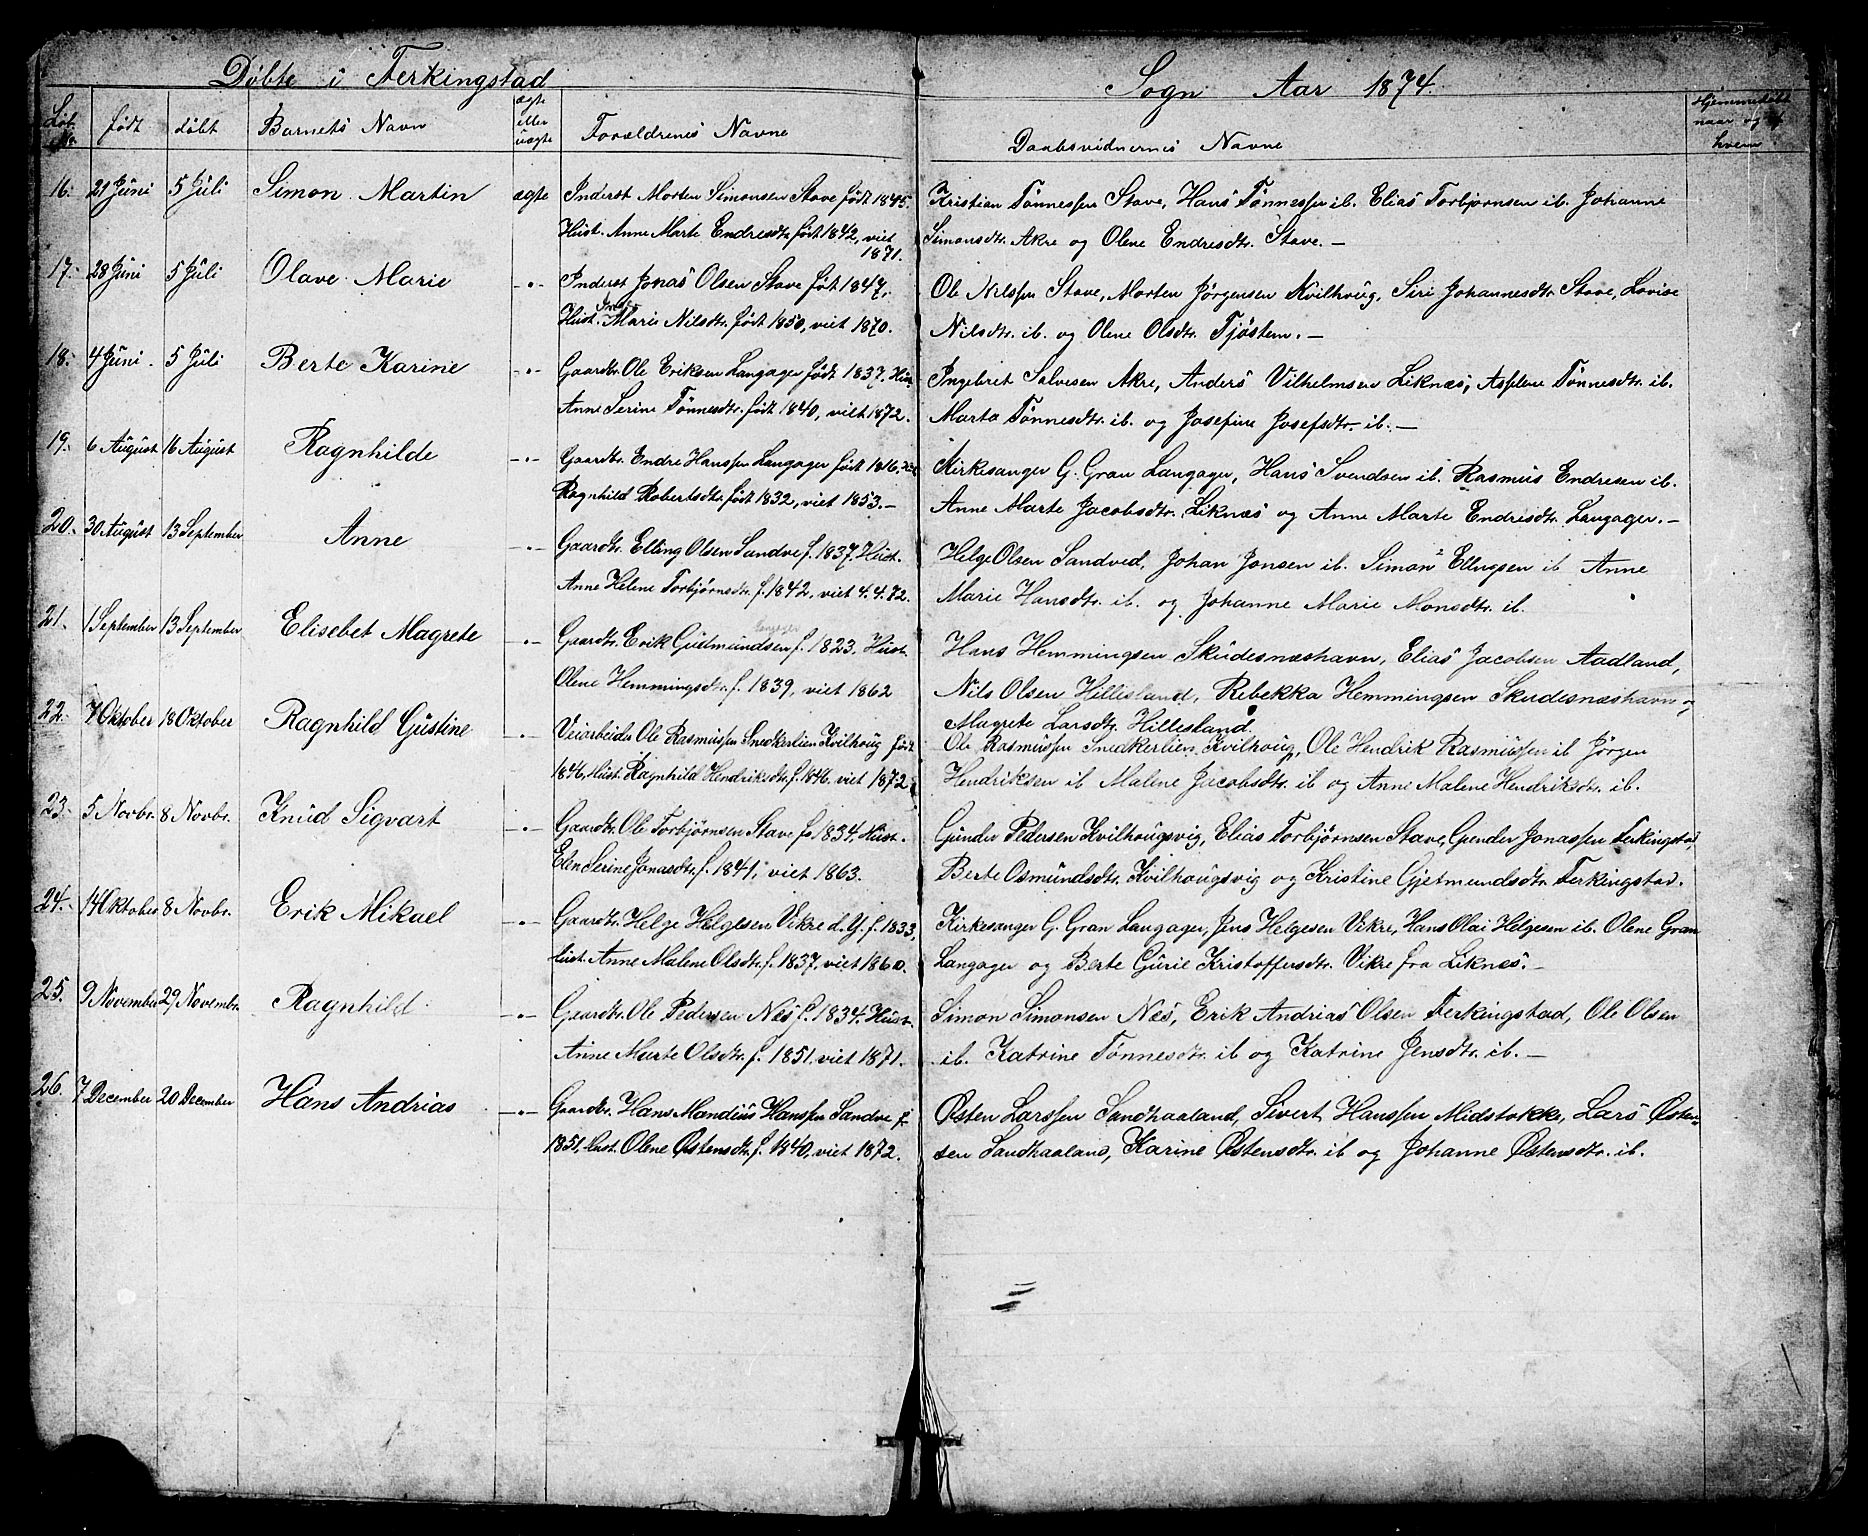 Døbte i Ferkingstad Sogn Aar 1874.
Løb. No. født døbt Barnets Navn ægte eller uægte Forældrenes Navne Daabsvidnernes Navne Hjemmedøbt naar og af hvem
16. 21 Juni 5 Juli Simon Martin ægte Inderst Morten Simonsen Stave født 1845. Kristian Tønnessen Stave, Hans Tønnessen ib. Elias Torbjørnsen ib. Johanne
Hust. Anne Marte Endresdtr. født 1842, viet 1871. Simonsdtr. Akre og Olene Endresdtr. Stave. —
17. 28 Juni 5 Juli Olave Marie -"- Inderst Jonas Olsen Stave føt 1847, Ole Nilssen Stave, Morten Jørgensen Kvilhoug, Siri Johannesdtr. Stave, Lovise
Hust. Marie Nilsdtr. født 1850, viet 1870. Nilsdtr. ib. og Olene Olsdtr. Tjøstem. —
18. 4 Juni. 5 Juli Berte Karine -"- Gaardbr. Ole Eriksen Langager født 1837. Hust. Ingebret Salvesen Akre, Anders Vilhelmsen Liknæs, Tønnesdtr. ib.
Anne Serine Tønnesdtr. født 1840, viet 1872. Marta Tønnesdtr. ib. og Josefine Josefsdtr. ib. —
19. 6 August 16 August Ragnhilde -"- Gaardbr. Endre Hanssen Langager født 1816. Hust. Kirkesanger G. Gran Langager, Hans Svendsen ib. Rasmus Endresen ib.
Ragnhild Robertsdtr. født 1832, viet 1853. — Anne Marte Jacobsdtr. Liknæs og Anne Marte Endresdtr. Langager. —
20. 30 August 13 September Anne -"- Gaardbr. Elling Olsen Sandve f. 1837. Hust. Helge Olsen Sandved, Johan Jonsen ib. Simon Ellingsen ib Anne
Anne Helene Torbjørnsdtr. f. 1842, viet 4.4.72. Marie Hansdtr. ib. og Johanne Marie Monsdtr. ib.
21. 1 September 13 September Elisebet Magrete -"- Gaardbr. Erik Gutmundsen Langager f. 1823. Hust. Hans Hemmingsen Skudesnæshavn, Elias Jacobsen Aadland,
Olene Hemmingsdtr. f. 1839, viet 1862 Nils Olsen Hillesland, Rebekka Hemmingsen Skudesnæshavn og
Magrete Larsdtr. Hillesland.
22. 7 Oktober 18 Oktober Ragnhild Gustine -"- Veiarbeider Ole Rasmussen Snedkerlien Kvilhoug født Ole Rasmussen Snedkerlien Kvilhoug, Ole Hendrik Rasmussen ib Jørgen
1846, Hust. Ragnhild Hendriksdtr. f. 1846. viet 1872 Hendriksen ib Malene Jacobsdtr. ib og Anne Malene Hendriksdtr. ib.
23. 5 Novbr. 8 Novbr. Knud Sigvart -"- Gaardbr. Ole Torbjørnsen Stave f. 1834, Hust. Gunder Pedersen Kvilhougsvig, Elias Torbjørnsen Stave, Gunder Jonassen Ferkingstad,
Elen Serine Jonasdtr. f. 1841, viet 1863. Berte Osmundsdtr. Kvilhougsvig og Kristine Gjetmundsdtr. Ferkingstad.
24. 14 Oktober 8 Novbr. Erik Mikael -"- Gaardbr. Helge Helgesen Vikre d. Y. f. 1833, Kirkesanger G. Gran Langager, Jens Helgesen Vikre, Hans Olai Helgesen ib. Olene Gran
Hust. Anne Malene Olsdtr. f. 1837, viet 1860. Langager og Berte Gurie Kristoffersdtr. Vikre fra Liknæs. —
25. 9 November 29 Novembr. Ragnhild -"- Gaardbr. Ole Pedersen Næs f. 1834. Hust. Simon Simonsen Næs, Erik Andrias Olsen Ferkingstad, Ole Olsen
Anne Marte Olsdtr. f. 1851. viet 1871. ib. Katrine Tønnesdtr. ib og Katrine Jensdtr. ib. —
26. 7 December 20 December Hans Andrias -"- Gaardbr. Hans Mandius Hanssen Sandve f. Østen Larssen Sandhaaland, Sivert Hanssen Midstokke, Lars Østen-
1851, Hust. Olene Østensdtr. f. 1840, viet 1872. sen Sandhaaland, Karine Østensdtr. ib og Johanne Østensdtr. ib.